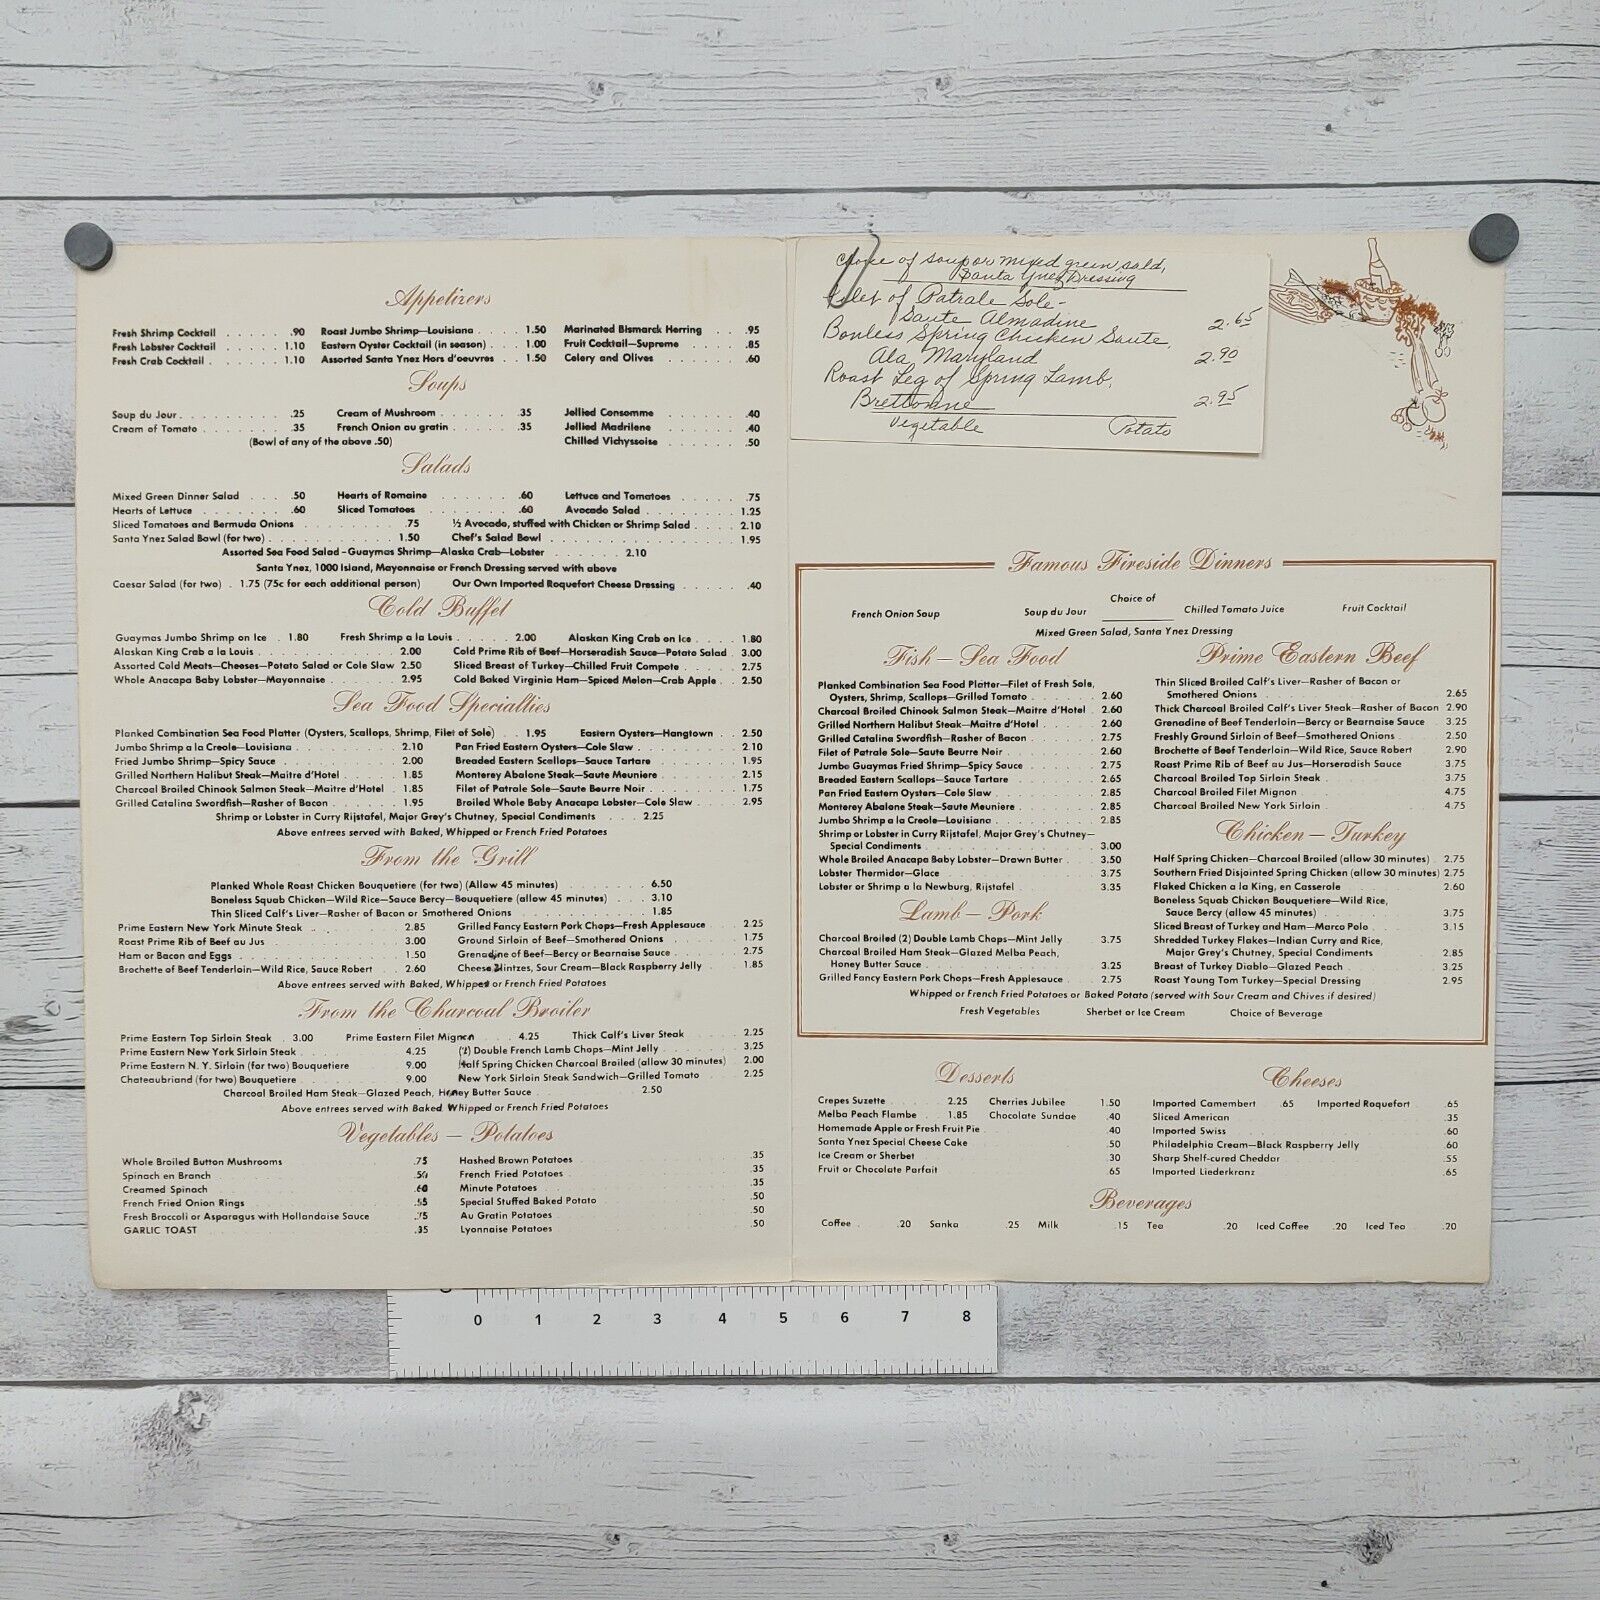 Appetizers
Fresh Shrimp Cocktail . . . . . .90 Roast Jumbo Shrimp—Louisiana . . . . 1.50 Marinated Bismarck Herring . . . .95
Fresh Lobster Cocktail . . . . . 1.10 Eastern Oyster Cocktail (in season) . . . 1.00 Fruit Cocktail—Supreme . . . . .85
Fresh Crab Cocktail . . . . . . 1.10 Assorted Santa Ynez Hors d'oeuvres . . 1.50 Celery and Olives . . . . . . .60
Soups
Soup du Jour . . . . . . . .25 Cream of Mushroom . . . . . .35 Jellied Consomme . . . . . . .40
Cream of Tomato . . . . . . .35 French Onion au gratin . . . . . .35 Jellied Madrilene . . . . . . .40
(Bowl of any of the above .50) Chilled Vichyssoise . . . . . . .50
Salads
Mixed Green Dinner Salad . . . .50 Hearts of Romaine . . . . . . .60 Lettuce and Tomatoes . . . . . .75
Hearts of Lettuce . . . . . . .60 Sliced Tomatoes . . . . . . . .60 Avocado Salad . . . . . . . 1.25
Sliced Tomatoes and Bermuda Onions . . . . . . . .75 ½ Avocado, stuffed with Chicken or Shrimp Salad . . . . 2.10
Santa Ynez Salad Bowl (for two) . . . . . . . . 1.50 Chef's Salad Bowl . . . . . . . . . . . . 1.95
Assorted Sea Food Salad - Guaymas Shrimp—Alaska Crab—Lobster . . . . . . 2.10
Santa Ynez, 1000 Island, Mayonnaise or French Dressing served with above
Caesar Salad (for two) . 1.75 (75c for each additional person) Our Own Imported Roquefort Cheese Dressing . . . . . .40
Cold Buffet
Guaymas Jumbo Shrimp on Ice . 1.80 Fresh Shrimp a la Louis . . . . . 2.00 Alaskan King Crab on Ice . . . . 1.80
Alaskan King Crab a la Louis . . . . . . . . . 2.00 Cold Prime Rib of Beef—Horseradish Sauce—Potato Salad . 3.00
Assorted Cold Meats—Cheeses—Potato Salad or Cole Slaw 2.50 Sliced Breast of Turkey—Chilled Fruit Compote . . . . . 2.75
Whole Anacapa Baby Lobster—Mayonnaise . . . . . . 2.95 Cold Baked Virginia Ham—Spiced Melon—Crab Apple . . 2.50
Sea Food Specialties
Planked Combination Sea Food Platter (Oysters, Scallops, Shrimp, Filet of Sole) . . 1.95 Eastern Oysters—Hangtown . . 2.50
Jumbo Shrimp a la Creole—Louisiana . . . . . . . 2.10 Pan Fried Eastern Oysters—Cole Slaw . . . . . . . 2.10
Fried Jumbo Shrimp—Spicy Sauce . . . . . . . . 2.00 Breaded Eastern Scallops—Sauce Tartare . . . . . . 1.95
Grilled Northern Halibut Steak—Maitre d'Hotel . . . . . 1.85 Monterey Abalone Steak—Saute Meuniere . . . . . . 2.15
Charcoal Broiled Chinook Salmon Steak—Maitre d'Hotel . . 1.85 Filet of Patrale Sole—Saute Beurre Noir . . . . . . 1.75
Grilled Catalina Swordfish—Rasher of Bacon . . . . . 1.95 Broiled Whole Baby Anacapa Lobster—Cole Slaw . . . . 2.95
Shrimp or Lobster in Curry Rijstafel, Major Grey's Chutney, Special Condiments . . . 2.25
Above entrees served with Baked, Whipped or French Fried Potatoes
From the Grill
Planked Whole Roast Chicken Bouquetiere (for two) (Allow 45 minutes) . . . . . . . 6.50
Boneless Squab Chicken—Wild Rice—Sauce Bercy—Bouquetiere (allow 45 minutes) . . . . 3.10
Thin Sliced Calf's Liver—Rasher of Bacon or Smothered Onions . . . . . . . . . 1.85
Prime Eastern New York Minute Steak . . . . . . . 2.85 Grilled Fancy Eastern Pork Chops—Fresh Applesauce . . . 2.25
Roast Prime Rib of Beef au Jus . . . . . . . . 3.00 Ground Sirloin of Beef—Smothered Onions . . . . . 1.75
Ham or Bacon and Eggs . . . . . . . . . . 1.50 Grenadine of Beef—Bercy or Bearnaise Sauce . . . . . 2.75
Brochette of Beef Tenderloin—Wild Rice, Sauce Robert . . . 2.60 Cheese Blintzes, Sour Cream—Black Raspberry Jelly . . . 1.85
Above entrees served with Baked, Whipped or French Fried Potatoes
From the Charcoal Broiler
Prime Eastern Top Sirloin Steak . 3.00 Prime Eastern Filet Mignon . . . . 4.25 Thick Calf's Liver Steak . . . . 2.25
Prime Eastern New York Sirloin Steak . . . . . . . 4.25 (2) Double French Lamb Chops—Mint Jelly . . . . . . 3.25
Prime Eastern N. Y. Sirloin (for two) Bouquetiere . . . . 9.00 Half Spring Chicken Charcoal Broiled (allow 30 minutes) . 2.00
Chateaubriand (for two) Bouquetiere . . . . . . . 9.00 New York Sirloin Steak Sandwich—Grilled Tomato . . . . 2.25
Charcoal Broiled Ham Steak—Glazed Peach, Honey Butter Sauce . . . . . . . 2.50
Above entrees served with Baked, Whipped or French Fried Potatoes
Vegetables — Potatoes
Whole Broiled Button Mushrooms .75 Hashed Brown Potatoes .35
Spinach en Branch .50 French Fried Potatoes .35
Creamed Spinach .60 Minute Potatoes .35
French Fried Onion Rings .55 Special Stuffed Baked Potato .50
Fresh Broccoli or Asparagus with Hollandaise Sauce .75 Au Gratin Potatoes .50
GARLIC TOAST .35 Lyonnaise Potatoes .50
Choice of soup or mixed green salad,
Santa Ynez Dressing
Filet of Patrale Sole-
Saute Almadine 2.65
Bonless Spring Chicken Saute,
Ala Maryland 2.90
Roast Leg of Spring Lamb,
Brettonne 2.95
Vegetable Potato
Famous Fireside Dinners
Choice of
French Onion Soup Soup du Jour Chilled Tomato Juice Fruit Cocktail
Mixed Green Salad, Santa Ynez Dressing
Fish — Sea Food
Planked Combination Sea Food Platter—Filet of Fresh Sole,
Oysters, Shrimp, Scallops—Grilled Tomato . . . . 2.60
Charcoal Broiled Chinook Salmon Steak—Maitre d'Hotel . 2.60
Grilled Northern Halibut Steak—Maitre d'Hotel . . . . 2.60
Grilled Catalina Swordfish—Rasher of Bacon . . . . 2.75
Filet of Patrale Sole—Saute Beurre Noir . . . . . 2.60
Jumbo Guaymas Fried Shrimp—Spicy Sauce . . . . 2.75
Breaded Eastern Scallops—Sauce Tartare . . . . . 2.65
Pan Fried Eastern Oysters—Cole Slaw . . . . . . 2.85
Monterey Abalone Steak—Saute Meuniere . . . . . 2.85
Jumbo Shrimp a la Creole—Louisiana . . . . . . 2.85
Shrimp or Lobster in Curry Rijstafel, Major Grey's Chutney—
Special Condiments . . . . . . . . . . 3.00
Whole Broiled Anacapa Baby Lobster—Drawn Butter . . 3.50
Lobster Thermidor—Glace . . . . . . . . . 3.75
Lobster or Shrimp a la Newburg, Rijstafel . . . . . 3.35
Lamb — Pork
Charcoal Broiled (2) Double Lamb Chops—Mint Jelly 3.75
Charcoal Broiled Ham Steak—Glazed Melba Peach,
Honey Butter Sauce . . . . . . . . . . 3.25
Grilled Fancy Eastern Pork Chops—Fresh Applesauce . . 2.75
Prime Eastern Beef
Thin Sliced Broiled Calf's Liver—Rasher of Bacon or
Smothered Onions . . . . . . . . . . 2.65
Thick Charcoal Broiled Calf's Liver Steak—Rasher of Bacon 2.90
Grenadine of Beef Tenderloin—Bercy or Bearnaise Sauce . 3.25
Freshly Ground Sirloin of Beef—Smothered Onions . . . 2.50
Brochette of Beef Tenderloin—Wild Rice, Sauce Robert 2.90
Roast Prime Rib of Beef au Jus—Horseradish Sauce 3.75
Charcoal Broiled Top Sirloin Steak . 3.75
Charcoal Broiled Filet Mignon . 4.75
Charcoal Broiled New York Sirloin . 4.75
Chicken — Turkey
Half Spring Chicken—Charcoal Broiled (allow 30 minutes) . 2.75
Southern Fried Disjointed Spring Chicken (allow 30 minutes) 2.75
Flaked Chicken a la King, en Casserole . . . . . . 2.60
Boneless Squab Chicken Bouquetiere—Wild Rice,
Sauce Bercy (allow 45 minutes) . . . . . . . 3.75
Sliced Breast of Turkey and Ham—Marco Polo . . . . 3.15
Shredded Turkey Flakes—Indian Curry and Rice,
Major Grey's Chutney, Special Condiments . . . . 2.85
Breast of Turkey Diablo—Glazed Peach . . . . . 3.25
Roast Young Tom Turkey—Special Dressing . . . . 2.95
Whipped or French Fried Potatoes or Baked Potato (served with Sour Cream and Chives if desired)
Fresh Vegetables Sherbet or Ice Cream Choice of Beverage
Desserts
Crepes Suzette . . . . 2.25 Cherries Jubilee 1.50
Melba Peach Flambe . . 1.85 Chocolate Sundae .40
Homemade Apple or Fresh Fruit Pie .40
Santa Ynez Special Cheese Cake .50
Ice Cream or Sherbet .30
Fruit or Chocolate Parfait .65
Cheeses
Imported Camembert .65 Imported Roquefort .65
Sliced American .35
Imported Swiss .60
Philadelphia Cream—Black Raspberry Jelly .60
Sharp Shelf-cured Cheddar .55
Imported Liederkranz .65
Beverages
Coffee . .20 Sanka .25 Milk .15 Tea .20 Iced Coffee .20 Iced Tea .20
0 1 2 3 4 5 6 7 8